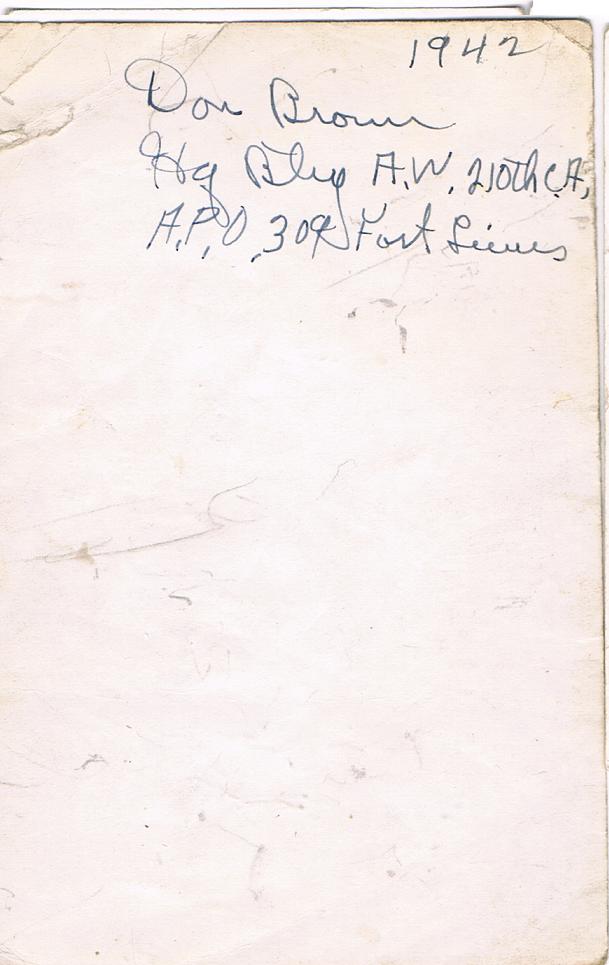 1942
Don Brown
Hq Btry A.W. 210th C.A.
A.P.O. 309 Fort